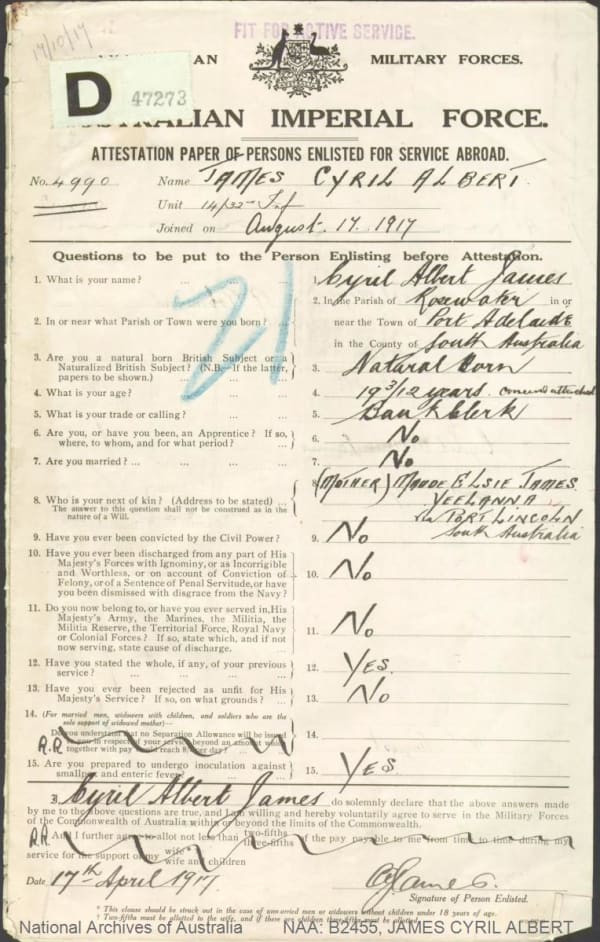 17/10/17
FIT FOR ACTIVE SERVICE.
AN MILITARY FORCES.
D 47273
AUSTRALIAN IMPERIAL FORCE.
ATTESTATION PAPER OF PERSONS ENLISTED FOR SERVICE ABROAD.
No. 4990 Name JAMES CYRIL ALBERT.
Unit 14/32 Inf
Joined on August. 17. 1917
Questions to be put to the Person Enlisting before Attestation.
21
1. What is your name? ... ... ... 1. Cyril Albert James
2. In or near what Parish or Town were you born? ... 2. In the Parish of Rosewater in or
near the Town of Port Adelaide
in the County of South Australia
3. Are you a natural born British Subject or a
Naturalized British Subject? (N.B.—If the latter,
papers to be shown.) ... ... 3. Natural Born
4. What is your age? ... ... ... 4. 19 3/12 years. consent attached
5. What is your trade or calling? ... ... 5. Bank Clerk
6. Are you, or have you been, an Apprentice? If so,
where, to whom, and for what period? ... 6. No
7. Are you married? ... ... ... ... 7. No
8. Who is your next of kin? (Address to be stated) ...
The answer to this question shall not be construed as in the
nature of a Will. 8. (MOTHER) MAUDE ELSIE JAMES
YEELANNA
via PORT LINCOLN
South Australia
9. Have you ever been convicted by the Civil Power? 9. No
10. Have you ever been discharged from any part of His
Majesty's Forces with Ignominy, or as Incorrigible
and Worthless, or on account of Conviction of
Felony, or of a Sentence of Penal Servitude, or have
you been dismissed with disgrace from the Navy? 10. No
11. Do you now belong to, or have you ever served in, His
Majesty's Army, the Marines, the Militia, the
Militia Reserve, the Territorial Force, Royal Navy
or Colonial Forces? If so, state which, and if not
now serving, state cause of discharge. 11. No
12. Have you stated the whole, if any, of your previous
service? ... ... ... ... 12. Yes.
13. Have you ever been rejected as unfit for His
Majesty's Service? If so, on what grounds? ... 13. No
14. (For married men, widowers with children, and soldiers who are the
sole support of widowed mother)—
Do you understand that no Separation Allowance will be issued
to you in respect of your service beyond an amount which
together with pay would reach 8/- per day? 14.
R.R
15. Are you prepared to undergo inoculation against
smallpox and enteric fever? ... 15. Yes.
I, Cyril Albert James do solemnly declare that the above answers made
by me to the above questions are true, and I am willing and hereby voluntarily agree to serve in the Military Forces
of the Commonwealth of Australia within or beyond the limits of the Commonwealth.
R.R. And I further agree to allot not less than two-fifths three-fifths of the pay payable to me from time to time during my
service for the support of my wife wife and children
Date 17th April 1917. CAJames.
Signature of Person Enlisted.
* This clause should be struck out in the case of unmarried men or widowers without children under 18 years of age.
† Two-fifths must be allotted to the wife, and if there are children three-fifths must be allotted.
National Archives of Australia NAA: B2455, JAMES CYRIL ALBERT